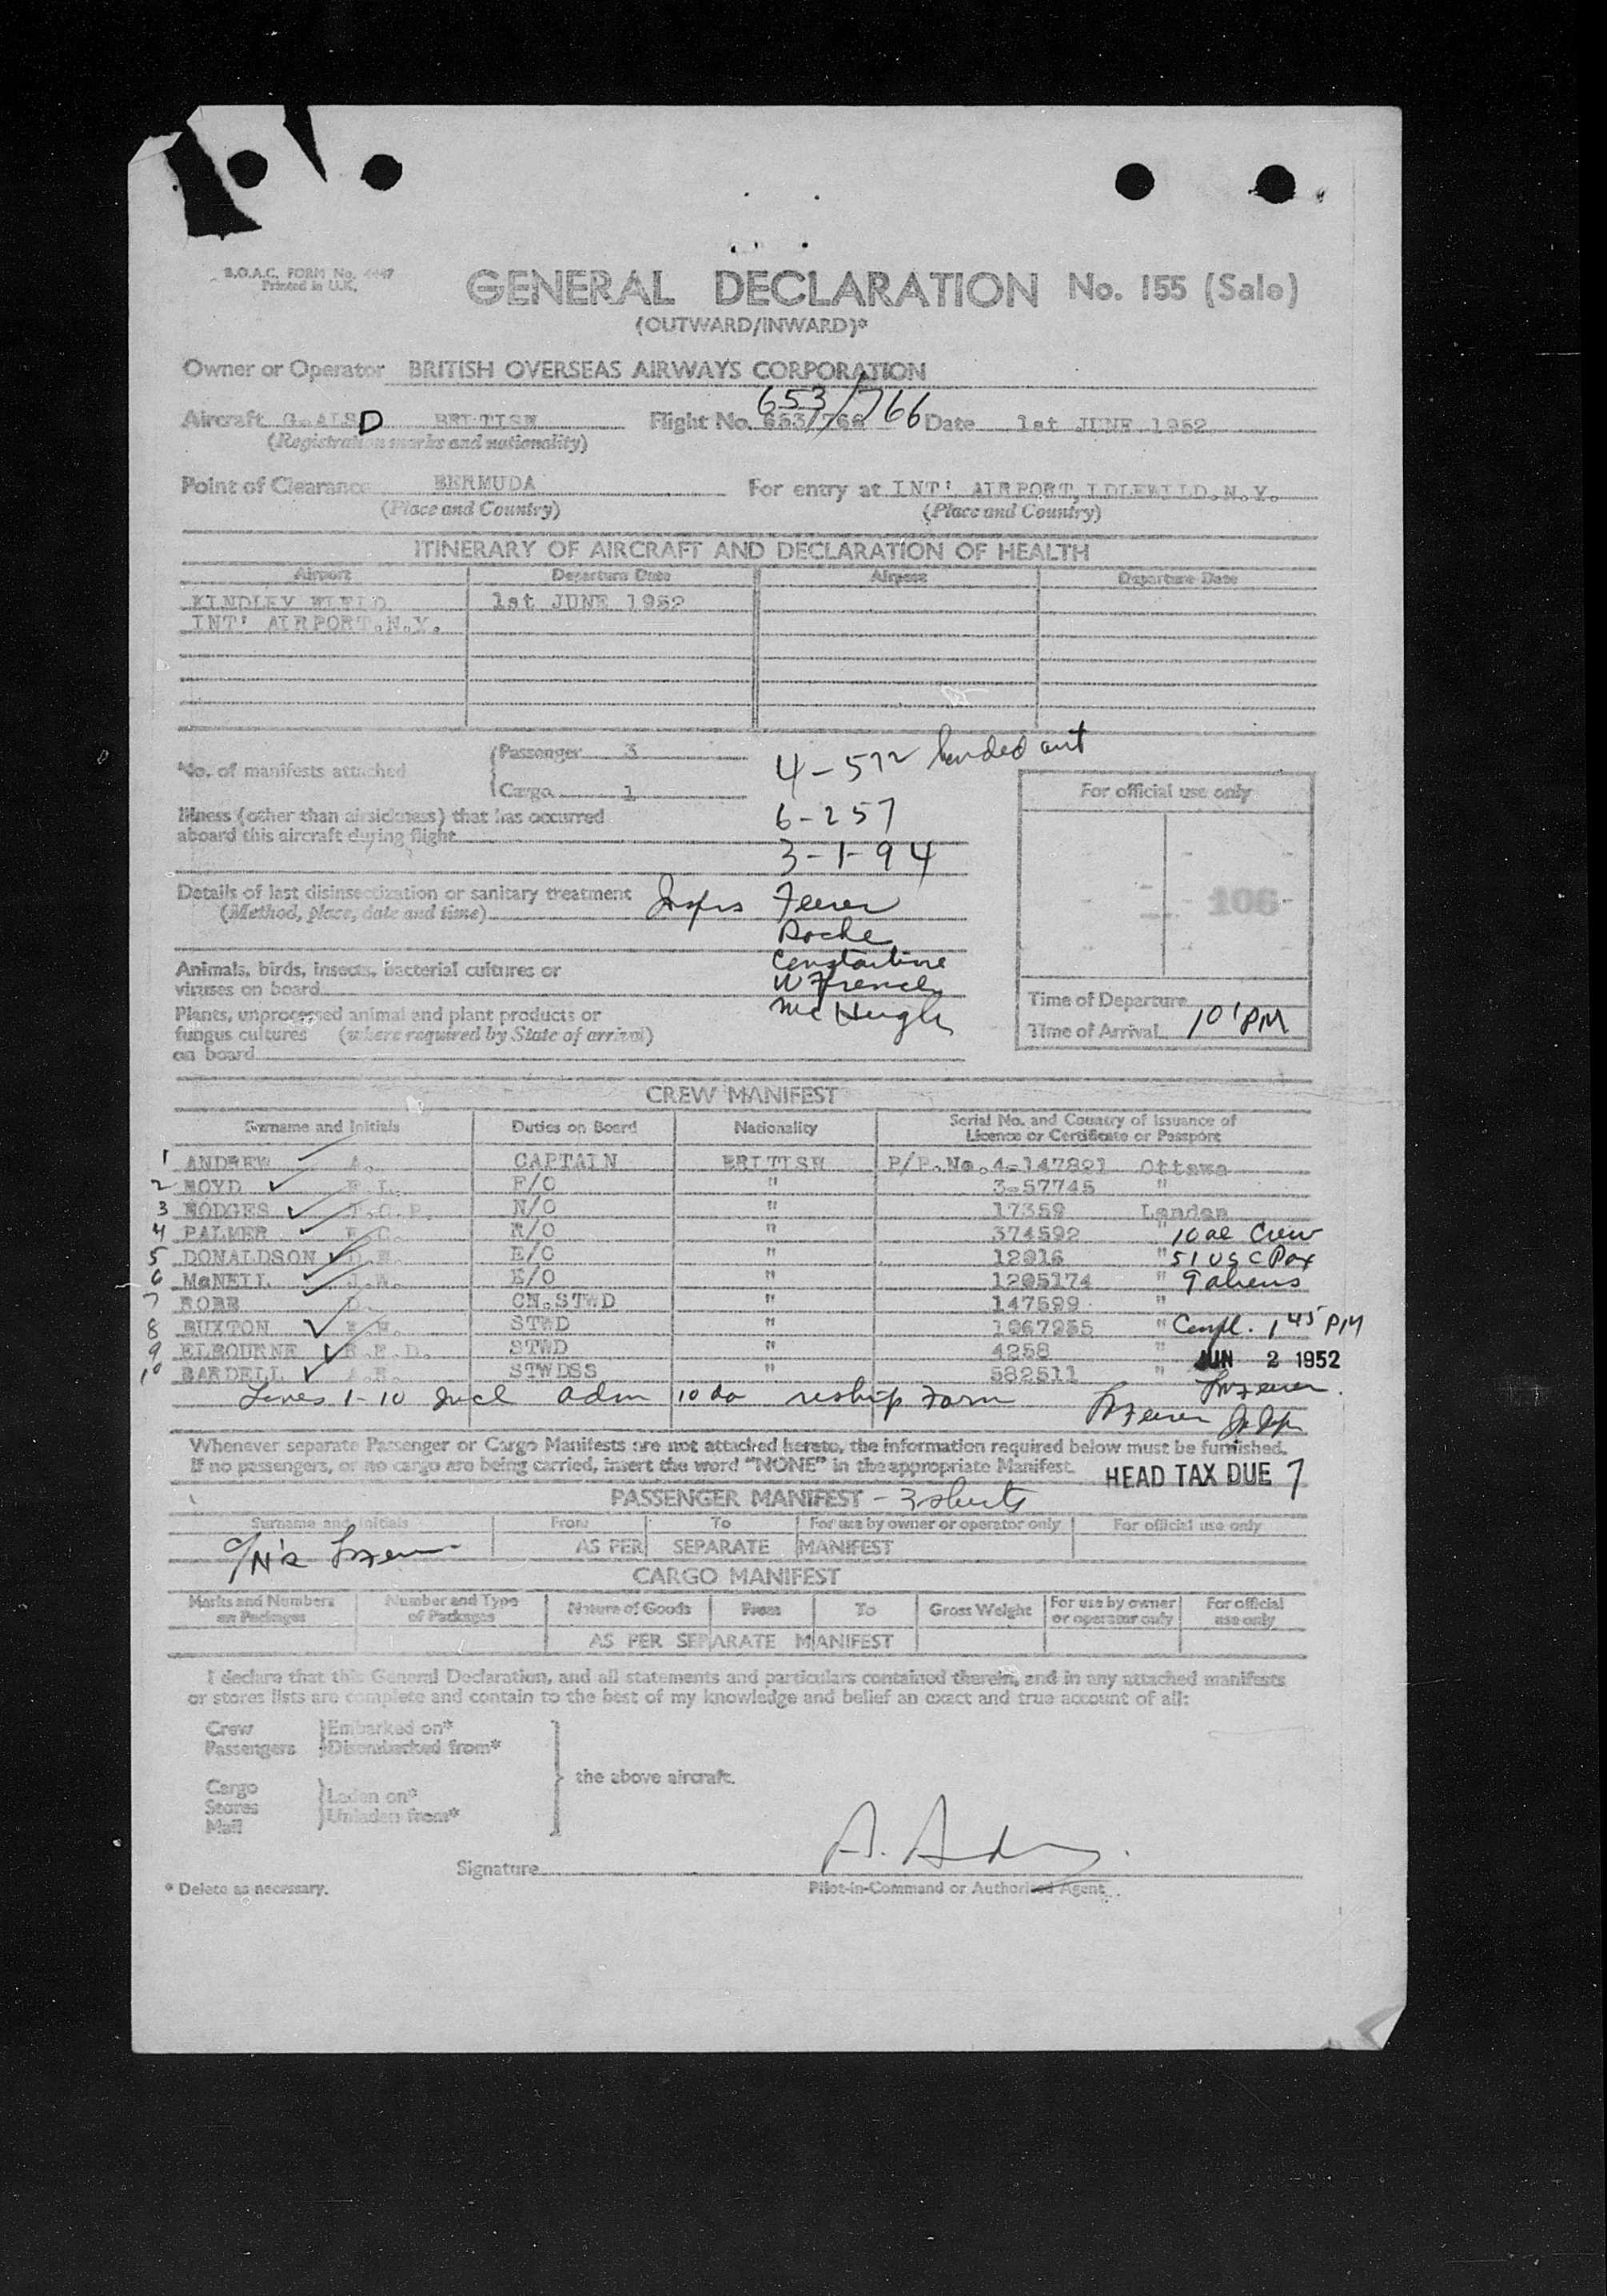 B.O.A.C. FORM No. 4447
Printed in U.K.
GENERAL DECLARATION No. 155 (Sale)
(OUTWARD/INWARD)*
Owner or Operator BRITISH OVERSEAS AIRWAYS CORPORATION
653/766
Aircraft G-ALSD BRITISH Flight No. 653/766 Date 1st JUNE 1952
(Registration marks and nationality)
Point of Clearance BERMUDA For entry at INT' AIRPORT, IDLEWILD.N.Y.
(Place and Country) (Place and Country)
ITINERARY OF AIRCRAFT AND DECLARATION OF HEALTH
Airport Departure Date Airport Departure Date
KINDLEY FIELD 1st JUNE 1952
INT' AIRPORT.N.Y.
No. of manifests attached
Passenger 3
Cargo 1
4-572 handed out
6-257
3-1-94
For official use only
106
Illness (other than airsickness) that has occurred
aboard this aircraft during flight
Details of last disinsectization or sanitary treatment
(Method, place, date and time)
Insprs Feerer
Roche
Constantine
W French
McHugh
Animals, birds, insects, bacterial cultures or
viruses on board
Plants, unprocessed animal and plant products or
fungus cultures (where required by State of arrival)
on board
Time of Departure
Time of Arrival 10 1 PM
CREW MANIFEST
Surname and Initials Duties on Board Nationality Serial No. and Country of Issuance of
Licence or Certificate or Passport
1 ANDREW A. CAPTAIN BRITISH P/P.No.4-147821 Ottawa
2 BOYD F/O " 3-57745 "
3 HODGES N/O " 17359 London
4 PALMER R/O " 374592 " 10 al Crew
5 DONALDSON E/O " 12016 " 51 USC Pax
6 McNEIL J.W. E/O " 1205174 " 9 aliens
7 ROBB D. CH.STWD " 147599 "
8 BUXTON STWD " 1067955 " Compl. 1 45 PM
9 ELBOURNE STWD " 4258 " JUN 2 1952
10 BARDELL STWDSS " 582511 "
Lines 1-10 Incl adm 10 da reship Form
Whenever separate Passenger or Cargo Manifests are not attached hereto, the information required below must be furnished.
If no passengers, or no cargo are being carried, insert the word "NONE" in the appropriate Manifest.
HEAD TAX DUE 7
PASSENGER MANIFEST - 3 sheets
Surname and Initials From To For use by owner or operator only For official use only
AS PER SEPARATE MANIFEST
CARGO MANIFEST
Marks and Numbers on Packages Number and Type of Packages Nature of Goods From To Gross Weight For use by owner or operator only For official use only
AS PER SEPARATE MANIFEST
I declare that this General Declaration, and all statements and particulars contained therein, and in any attached manifests
or stores lists are complete and contain to the best of my knowledge and belief an exact and true account of all:
Crew Embarked on*
Passengers Disembarked from*
the above aircraft.
Cargo
Stores
Mail
Laden on*
Unladen from*
Signature
* Delete as necessary.
Pilot-in-Command or Authorised Agent